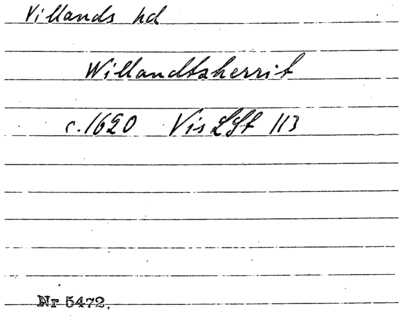 Villands hd
Willandtzherrit
c. 1620 Vis LSt 113
Nr 5472.